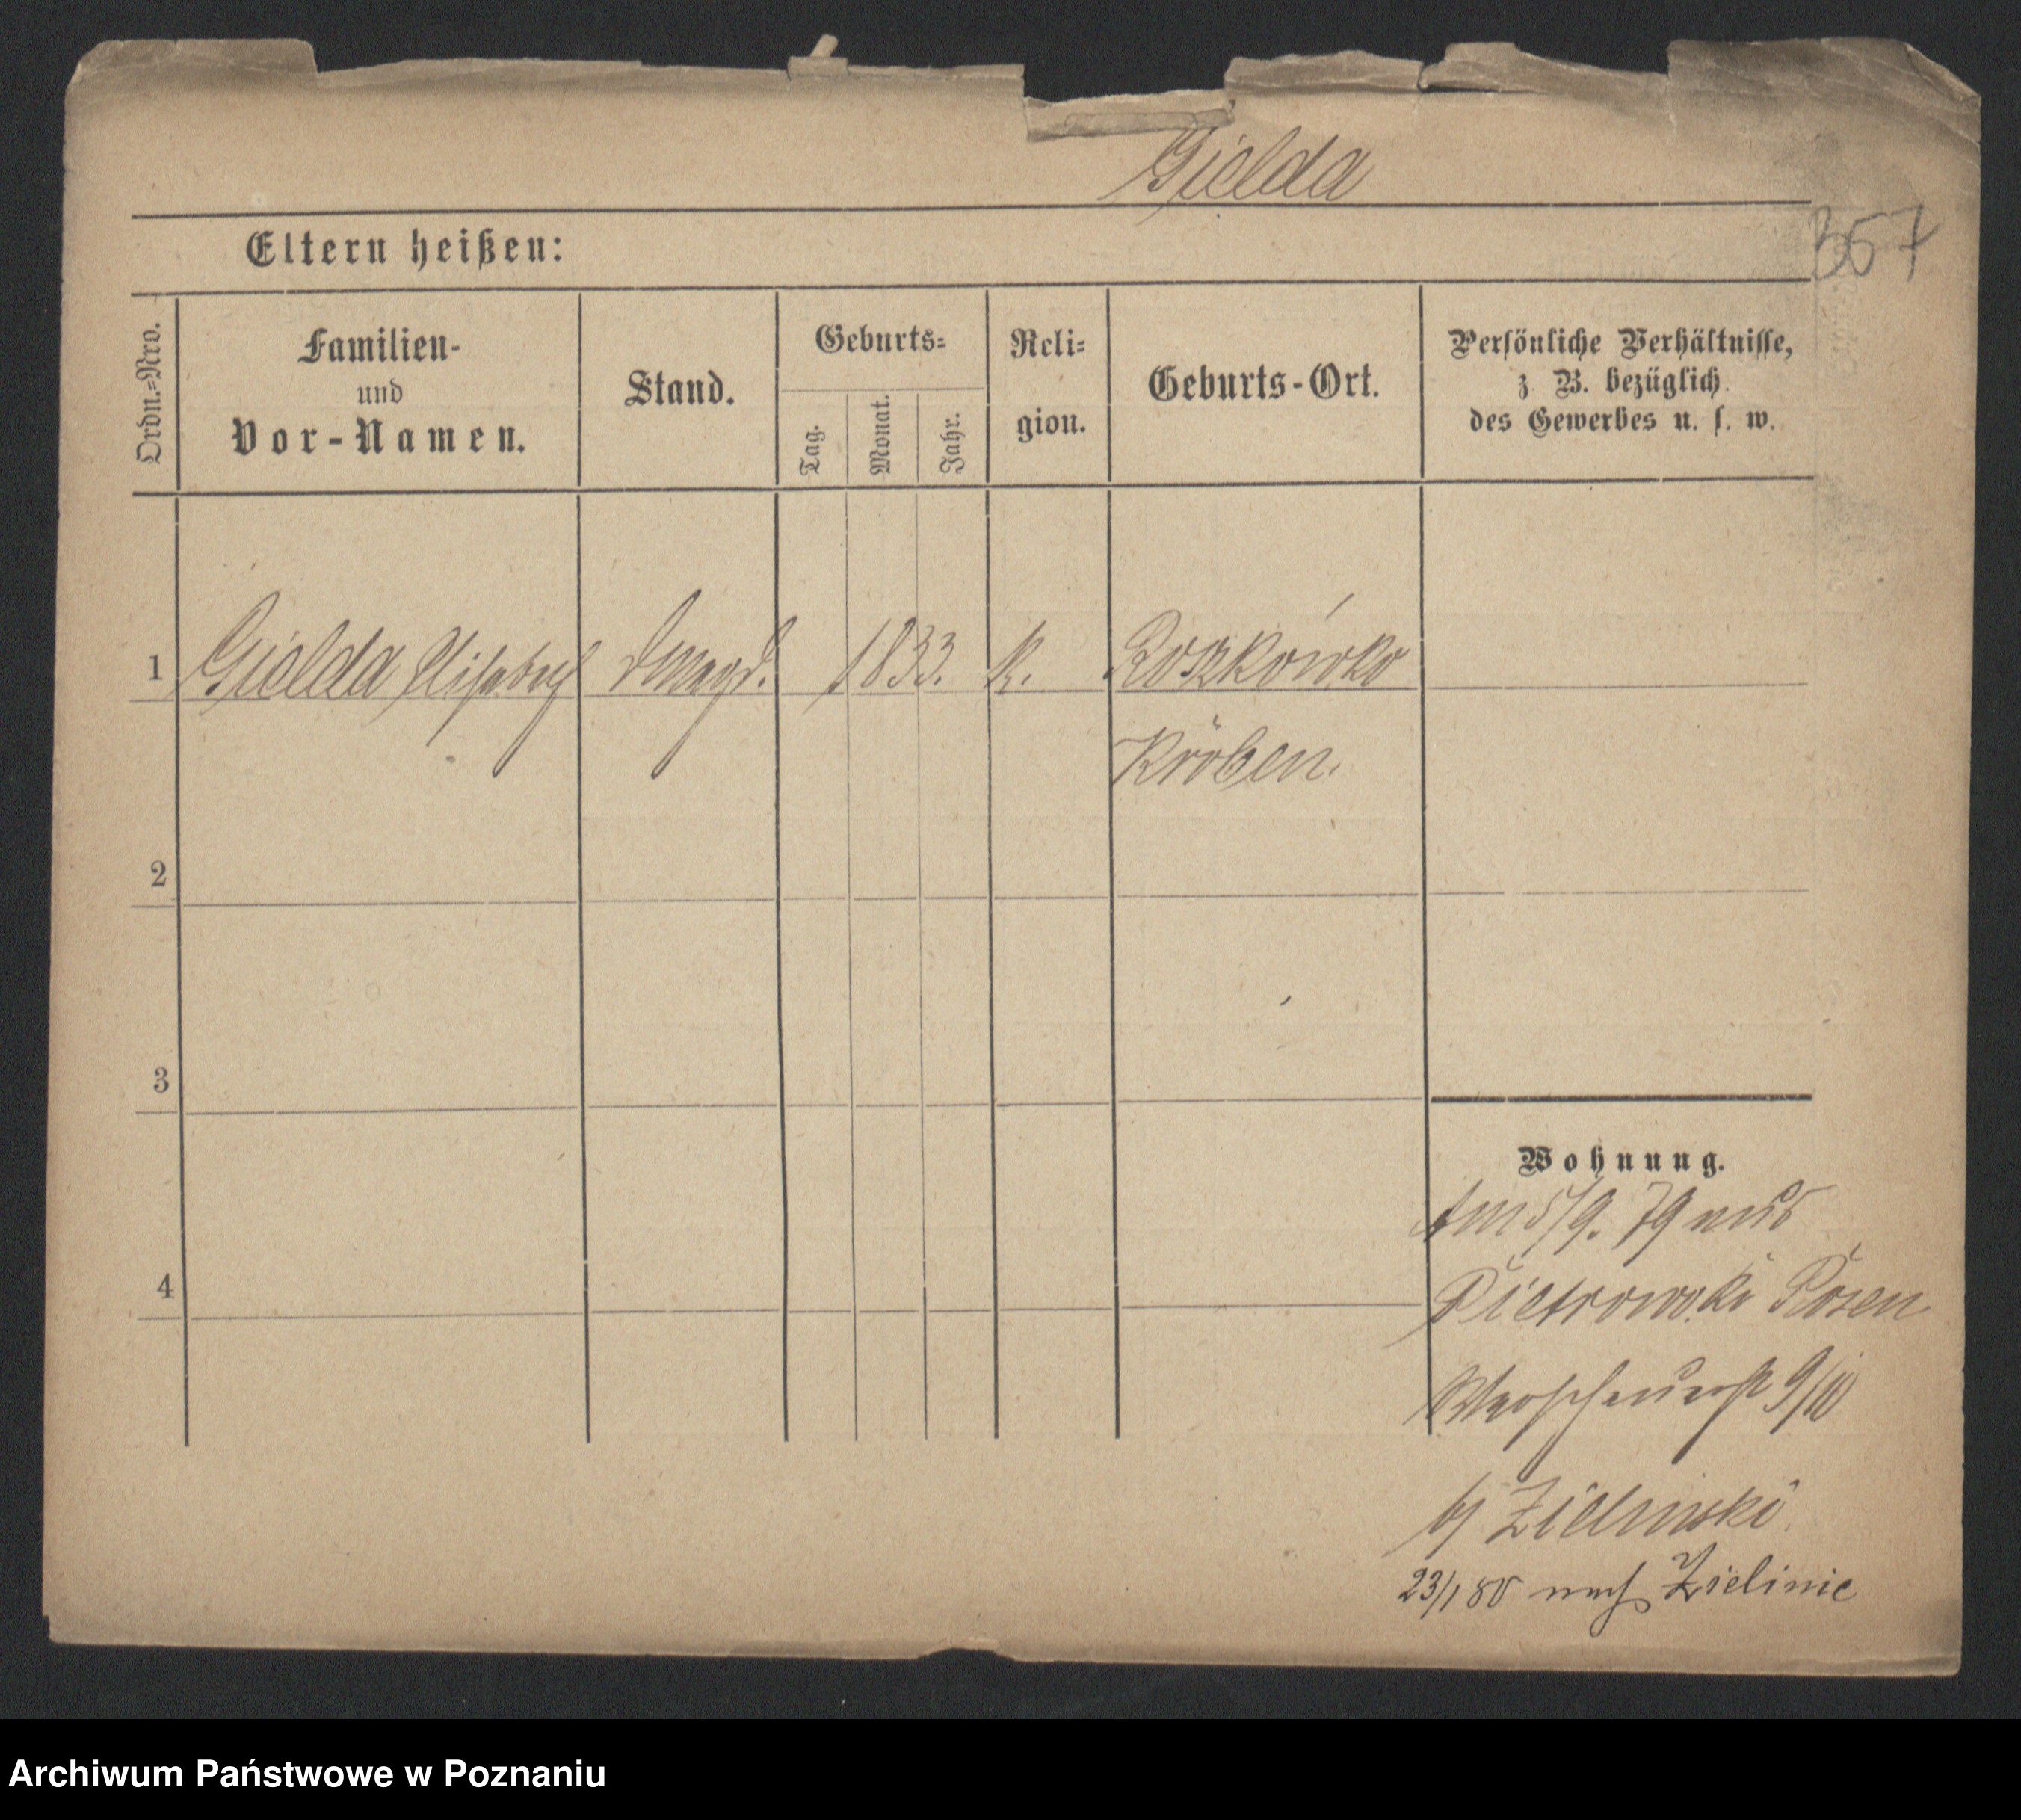 Gielda
357
Eltern heißen:
Ordn.-Nro.
Familien-
und
Vor-Namen.
Stand.
Geburts-
Tag.
Monat.
Jahr.
Reli-
gion.
Geburts-Ort.
Persönliche Verhältnisse,
z. B. bezüglich
des Gewerbes u. s. w.
1 Gielda Elisabeth Dmagd. 1833. k. Roszkówko
Kröben.
2
3
4
Wohnung.
Am 5/9. 79 aus
Pietrowski Posen
9/10
b/ Zielinski
23/1 80 nach Zielinie
Archiwum Państwowe w Poznaniu